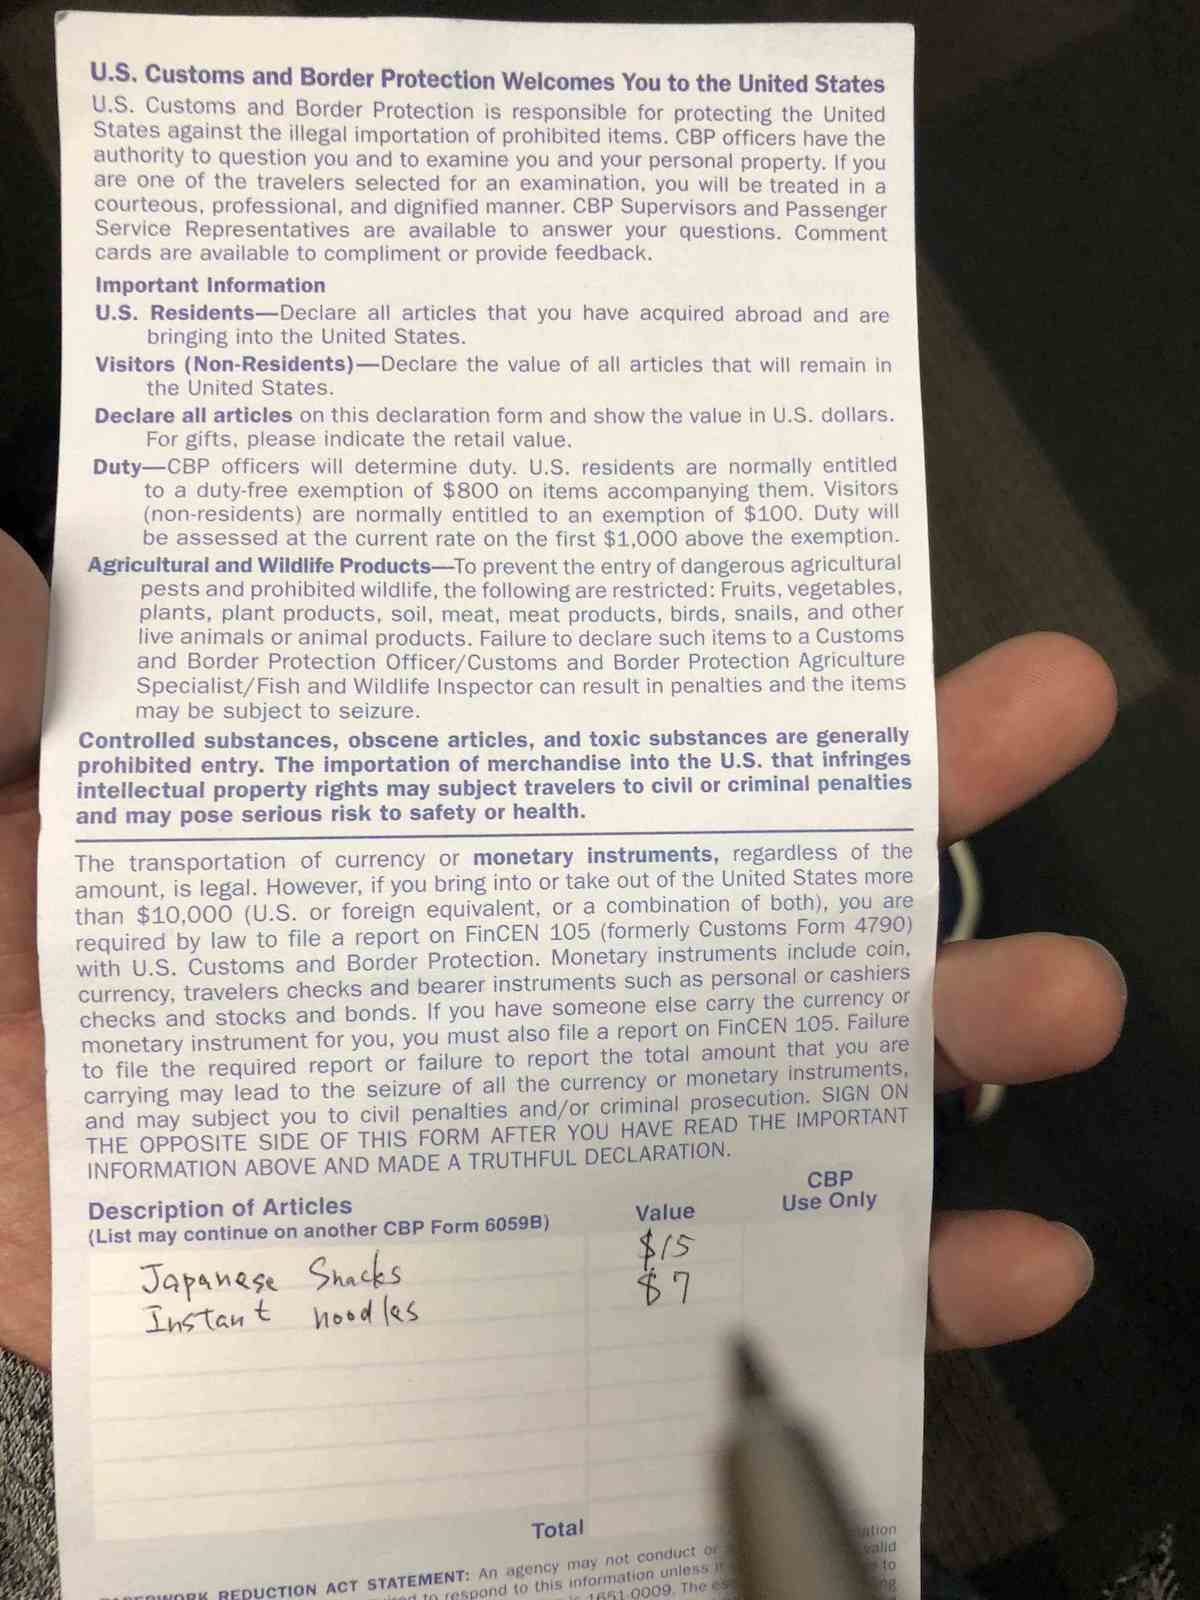 U.S. Customs and Border Protection Welcomes You to the United States
U.S. Customs and Border Protection is responsible for protecting the United
States against the illegal importation of prohibited items. CBP officers have the
authority to question you and to examine you and your personal property. If you
are one of the travelers selected for an examination, you will be treated in a
courteous, professional, and dignified manner. CBP Supervisors and Passenger
Service Representatives are available to answer your questions. Comment
cards are available to compliment or provide feedback.
Important Information
U.S. Residents—Declare all articles that you have acquired abroad and are
bringing into the United States.
Visitors (Non-Residents)—Declare the value of all articles that will remain in
the United States.
Declare all articles on this declaration form and show the value in U.S. dollars.
For gifts, please indicate the retail value.
Duty—CBP officers will determine duty. U.S. residents are normally entitled
to a duty-free exemption of $800 on items accompanying them. Visitors
(non-residents) are normally entitled to an exemption of $100. Duty will
be assessed at the current rate on the first $1,000 above the exemption.
Agricultural and Wildlife Products—To prevent the entry of dangerous agricultural
pests and prohibited wildlife, the following are restricted: Fruits, vegetables,
plants, plant products, soil, meat, meat products, birds, snails, and other
live animals or animal products. Failure to declare such items to a Customs
and Border Protection Officer/Customs and Border Protection Agriculture
Specialist/Fish and Wildlife Inspector can result in penalties and the items
may be subject to seizure.
Controlled substances, obscene articles, and toxic substances are generally
prohibited entry. The importation of merchandise into the U.S. that infringes
intellectual property rights may subject travelers to civil or criminal penalties
and may pose serious risk to safety or health.
The transportation of currency or monetary instruments, regardless of the
amount, is legal. However, if you bring into or take out of the United States more
than $10,000 (U.S. or foreign equivalent, or a combination of both), you are
required by law to file a report on FinCEN 105 (formerly Customs Form 4790)
with U.S. Customs and Border Protection. Monetary instruments include coin,
currency, travelers checks and bearer instruments such as personal or cashiers
checks and stocks and bonds. If you have someone else carry the currency or
monetary instrument for you, you must also file a report on FinCEN 105. Failure
to file the required report or failure to report the total amount that you are
carrying may lead to the seizure of all the currency or monetary instruments,
and may subject you to civil penalties and/or criminal prosecution. SIGN ON
THE OPPOSITE SIDE OF THIS FORM AFTER YOU HAVE READ THE IMPORTANT
INFORMATION ABOVE AND MADE A TRUTHFUL DECLARATION.
Description of Articles
(List may continue on another CBP Form 6059B)
Value
CBP
Use Only
Japanese Snacks $15
Instant noodles $7
Total
REDUCTION ACT STATEMENT: An agency may not conduct or valid
to respond to this information unless to
1651-0009. The